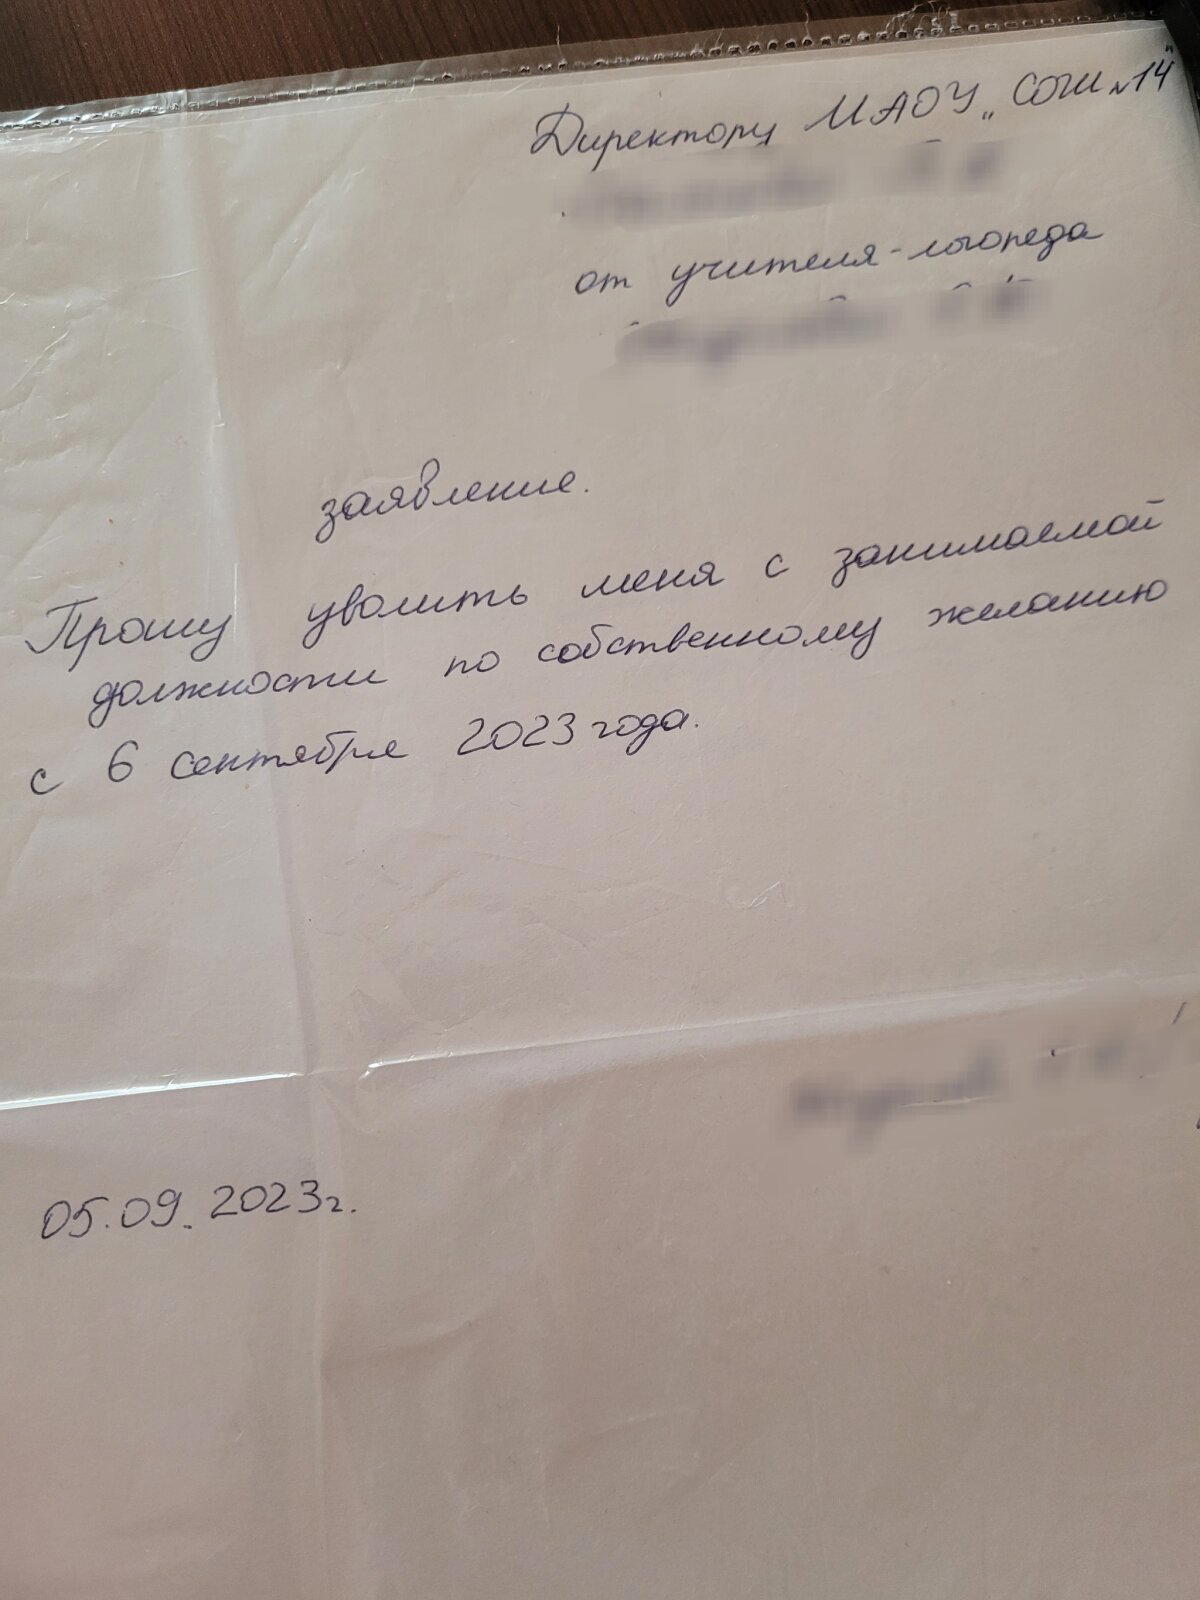 Директору МАОУ „СОШ №14"
от учителя-логопеда
заявление.
Прошу уволить меня с занимаемой
должности по собственному желанию
с 6 сентября 2023 года.
05.09.2023г.